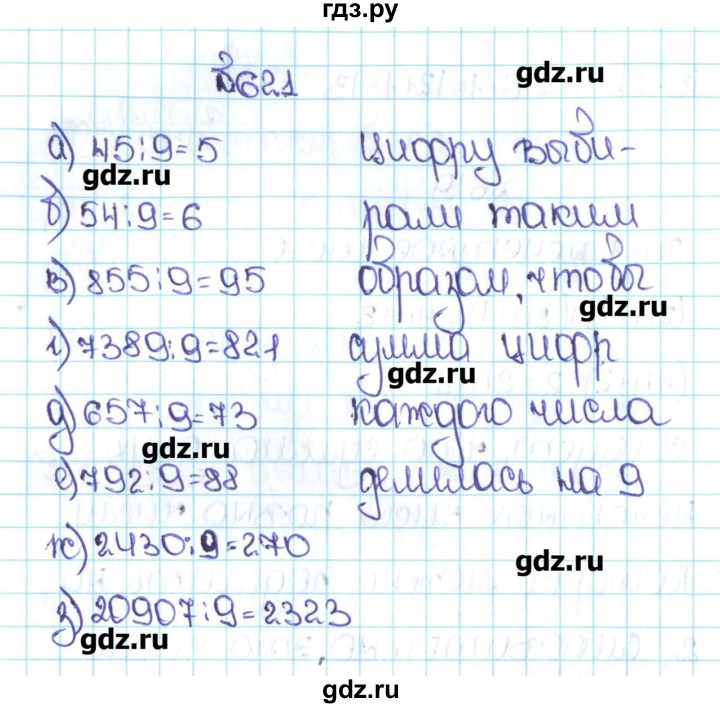 гдз.ру
№621
gdz.ru
а) 45:9=5 цифру выби-
gdz.ru
б) 54:9=6 рали таким
в) 855:9=95 образом, чтобы
gdz.ru
г) 7389:9=821 сумма цифр
gdz.ru
д) 657:9=73 каждого числа
gdz.ru
е) 792:9=88 делилась на 9
ж) 2430:9=270
gdz.ru
з) 20907:9=2323
gdz.ru
gdz.ru